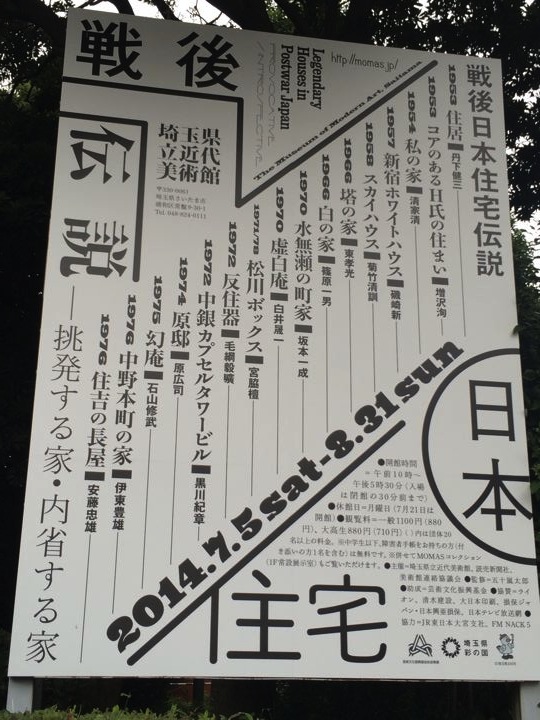 戦後
伝説
日本
住宅
Legendary
Houses in
Postwar Japan
PROVOCATIVE
/ INTROSPECTIVE
http://momas.jp/
The Museum of Modern Art, Saitama
埼玉県
立近代
美術館
〒330-0061
埼玉県さいたま市
浦和区常盤9-30-1
Tel. 048-824-0111
戦後日本住宅伝説
1953 住居 丹下健三
1953 コアのあるH氏の住まい 増沢洵
1954 私の家 清家清
1957 新宿ホワイトハウス 磯崎新
1958 スカイハウス 菊竹清訓
1966 塔の家 東孝光
1966 白の家 篠原一男
1970 水無瀬の町家 坂本一成
1970 虚白庵 白井晟一
1971/78 松川ボックス 宮脇檀
1972 反住器 毛綱毅曠
1972 中銀カプセルタワービル 黒川紀章
1974 原邸 原広司
1975 幻庵 石山修武
1976 中野本町の家 伊東豊雄
1976 住吉の長屋 安藤忠雄
—挑発する家・内省する家
2014.7.5sat-8.31sun
●開館時間
=午前10時〜
午後5時30分(入場
は閉館の30分前まで)
●休館日=月曜日(7月21日は
開館)●観覧料=一般1100円(880
円)、大高生880円(710円)( )内は団体20
名以上の料金。※中学生以下、障害者手帳をお持ちの方(付
き添いの方1名を含む)は無料です。※併せてMOMASコレクション
(1F常設展示室)もご覧いただけます。●主催=埼玉県立近代美術館、読売新聞社、
美術館連絡協議会 ●監修=五十嵐太郎
●助成=芸術文化振興基金 ●協賛=ライ
オン、清水建設、大日本印刷、損保ジャ
パン・日本興亜損保、日本テレビ放送網 ●
協力=JR東日本大宮支社、FM NACK5
埼玉県
彩の国